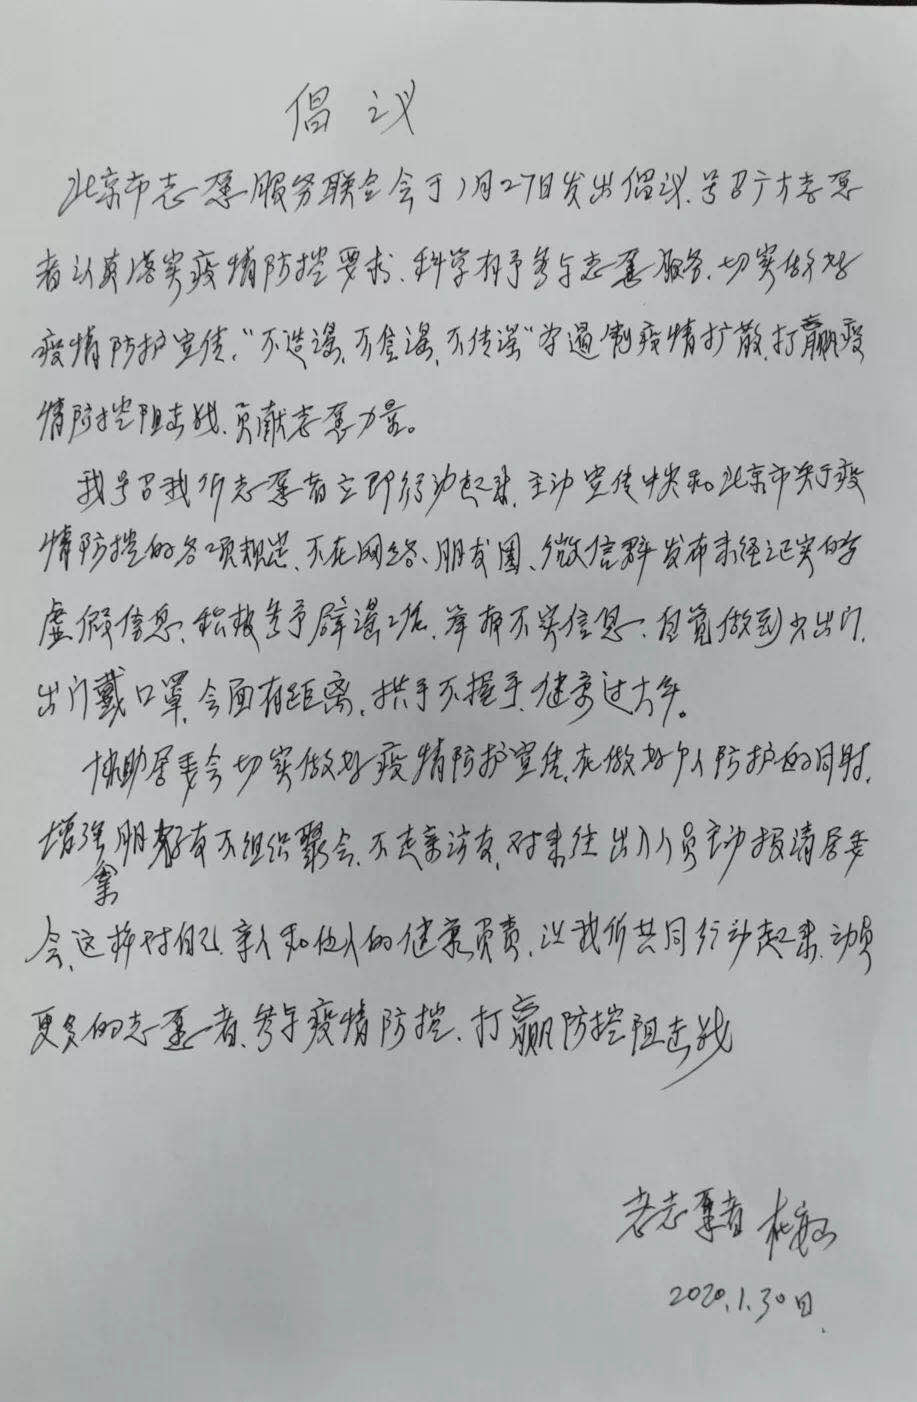 倡议
北京市志愿服务联合会于1月27日发出倡议、号召广大志愿
者认真落实疫情防控要求、科学有序参与志愿服务、切实做好
疫情防护宣传,“不造谣、不信谣、不传谣”为遏制疫情扩散,打赢疫
情防控阻击战、贡献志愿力量。
我号召我们志愿者立即行动起来,主动宣传中央和北京市关于疫
情防控的各项规定、不在网络、朋友圈、微信群发布未经证实的
虚假信息、积极参予辟谣工作、举报不实信息、自觉做到少出门,
出门戴口罩,会面有距离,拱手不握手,健康过大年。
协助居委会切实做好疫情防护宣传,在做好个人防护的同时,
增强朋友不组织聚会,不走亲访友,对来往出入人员主动报请居委
会,这样对自己、亲人和他人的健康负责,让我们共同行动起来,动员
更多的志愿者,参与疫情防控、打赢防控阻击战
老志愿者
2020.1.30日